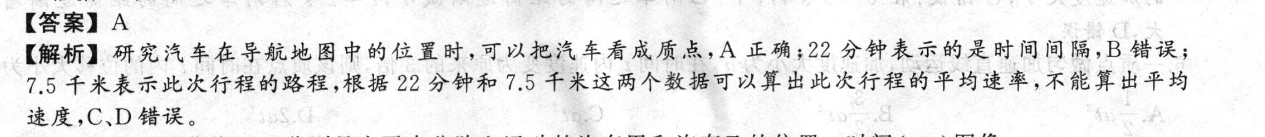 【答案】A
【解析】研究汽车在导航地图中的位置时,可以把汽车看成质点,A 正确;22 分钟表示的是时间间隔,B 错误;
7.5 千米表示此次行程的路程,根据 22 分钟和 7.5 千米这两个数据可以算出此次行程的平均速率,不能算出平均
速度,C、D 错误。